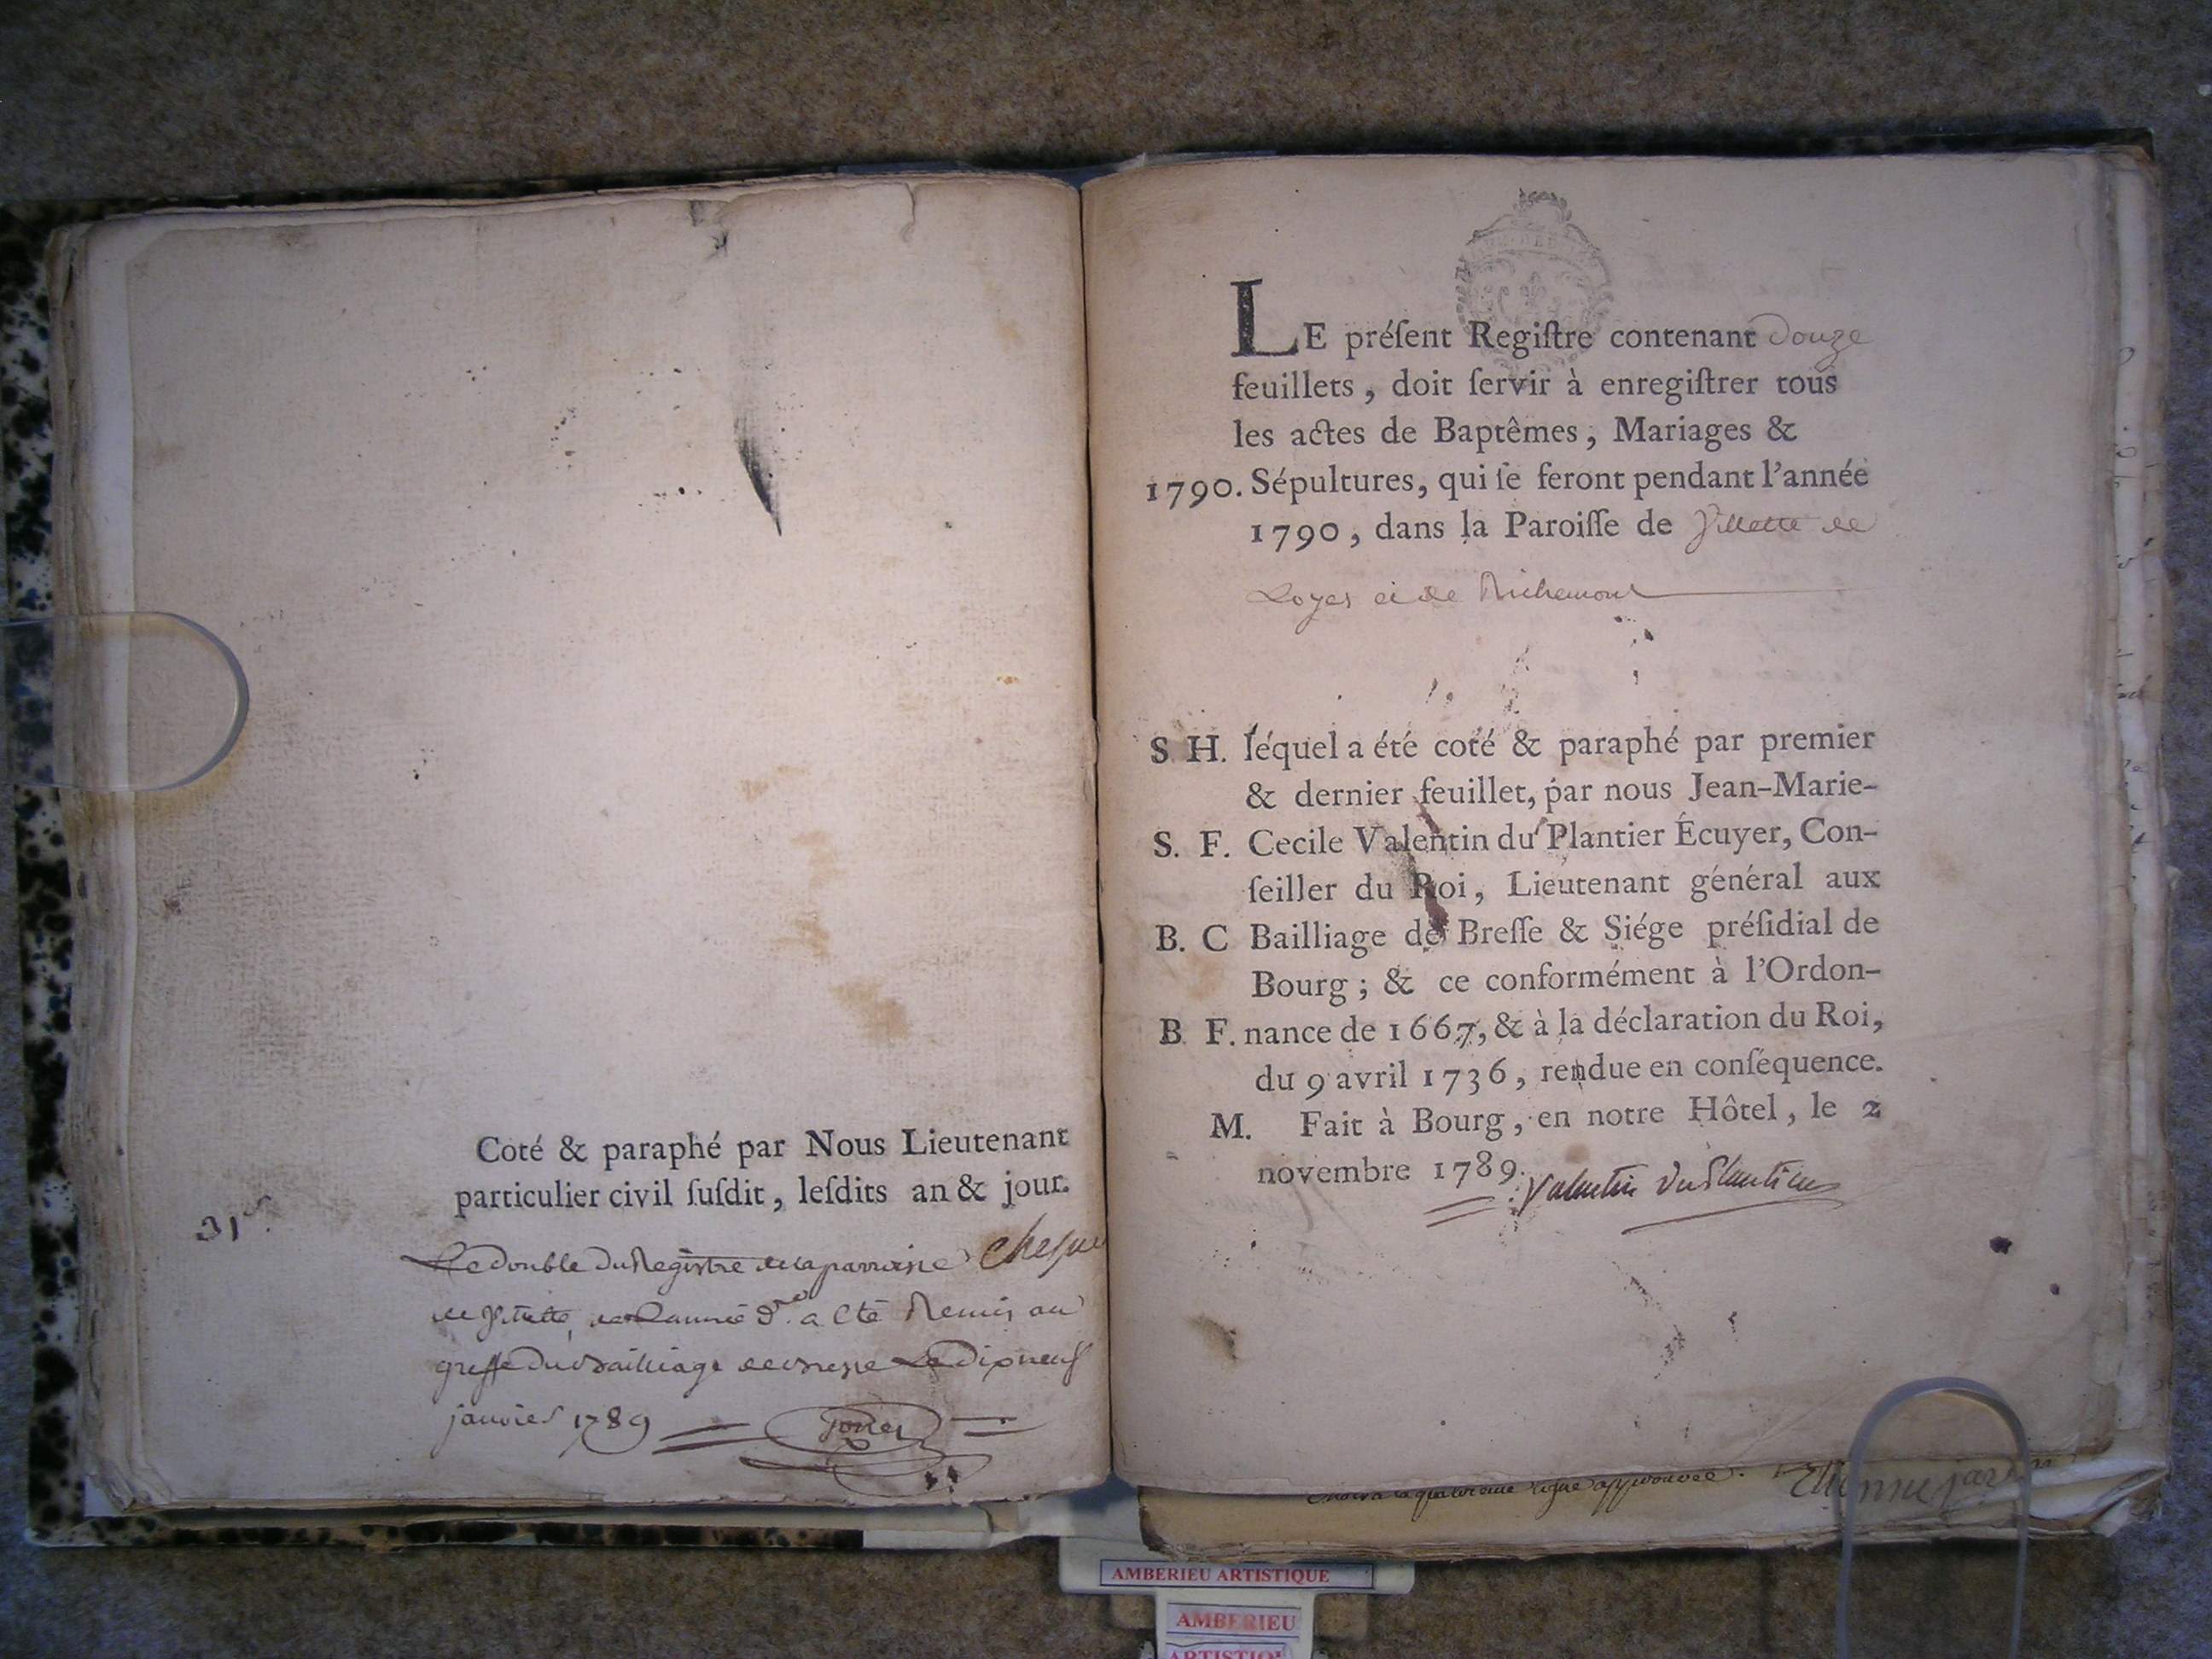 Coté & paraphé par Nous Lieutenant
particulier civil ſuſdit, leſdits an & jour.
31
Le double du Registre de la parroisse
de Villette de L'année d. a été Remis au
greffe du Bailliage de Bresse Le Dixneuf
janvier 1789
LE préſent Regiſtre contenant Douze
feuillets, doit ſervir à enregiſtrer tous
les actes de Baptêmes, Mariages &
1790. Sépultures, qui ſe feront pendant l'année
1790, dans la Paroiſſe de Villette de
Loyes et de Richemont
S H. léquel a été coté & paraphé par premier
& dernier feuillet, par nous Jean-Marie-
S. F. Cecile Valentin du Plantier Écuyer, Con-
ſeiller du Roi, Lieutenant général aux
B. C Bailliage de Breſſe & Siége préſidial de
Bourg; & ce conformément à l'Ordon-
B F. nance de 1667, & à la déclaration du Roi,
du 9 avril 1736, rendue en conſéquence.
M. Fait à Bourg, en notre Hôtel, le 2
novembre 1789. Valentin DuPlantier
ligne approuvée. Etienne
AMBERIEU ARTISTIQUE
AMBERIEU
ARTISTIQ